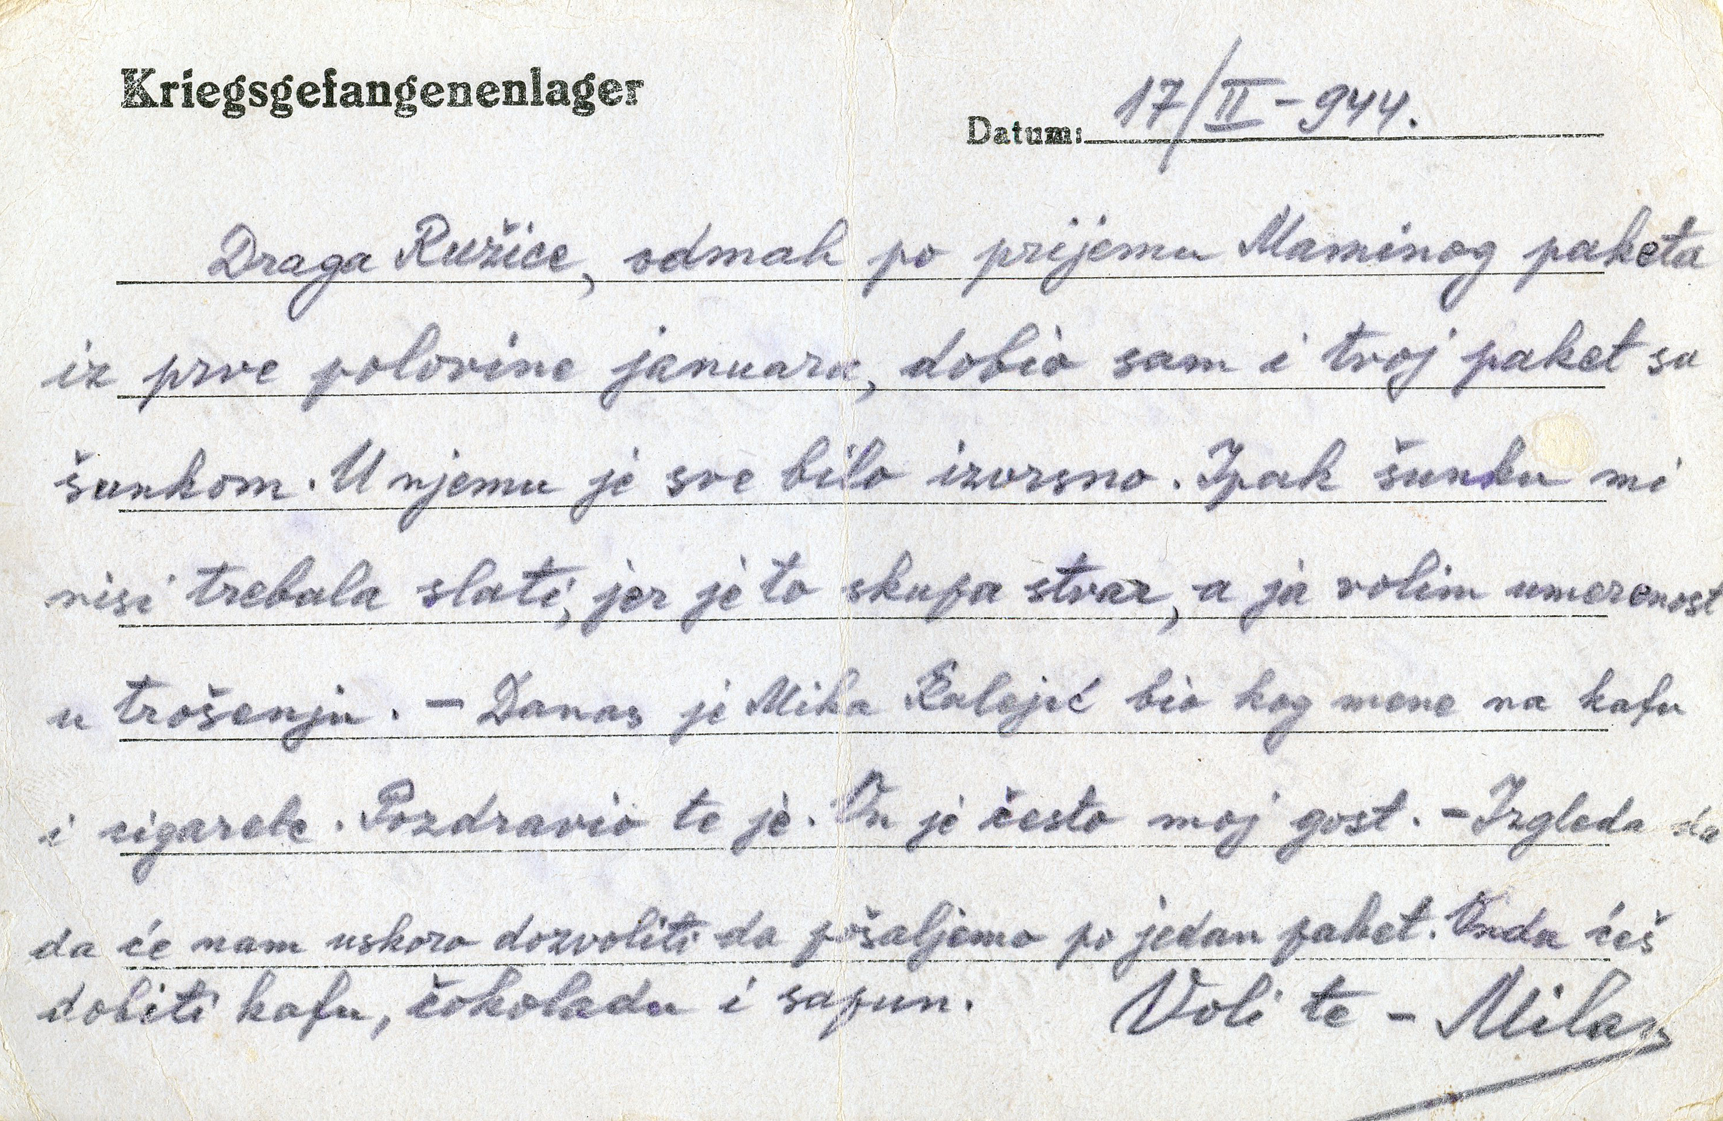 Kriegsgefangenenlager
Datum: 17/II-944.
Draga Ružice, odmah po prijemu Maminog paketa
iz prve polovine januara, dobio sam i tvoj paket sa
šunkom. U njemu je sve bilo izvrsno. Ipak šunku mi
nisi trebala slati, jer je to skupa stvar, a ja volim umerenost
u trošenju. – Danas je Mika bio kog mene na kafu
i cigarete. Pozdravio te je. On je često moj gost. – Izgleda da
da će nam uskoro dozvoliti da pošaljemo po jedan paket. Onda ćeš
dobiti kafu, čokoladu i sapun. Voli te – Milan